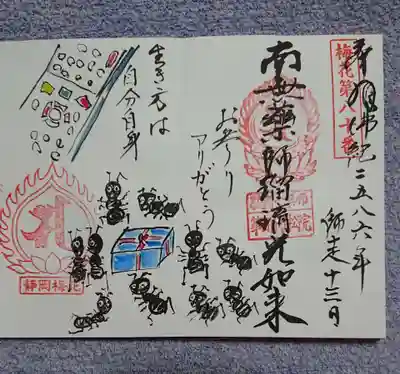 奉拝
佛紀二五八六年
師走十三日
梅花第八十番
南無薬師瑠璃光如来
お参り
アリがとう
生き方は
自分自身
静岡梅花